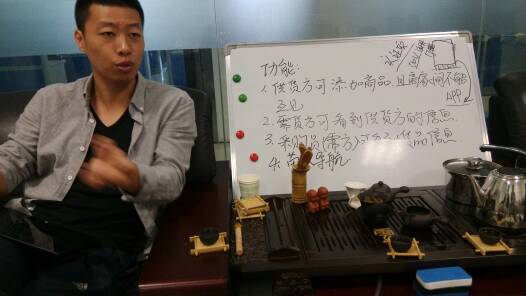 功能:
1.供货方可添加商品,且商家间不能
互见
2.需货方可看到供货方的信息
3.采购员(需方)可
货品信息
4.
导航
APP